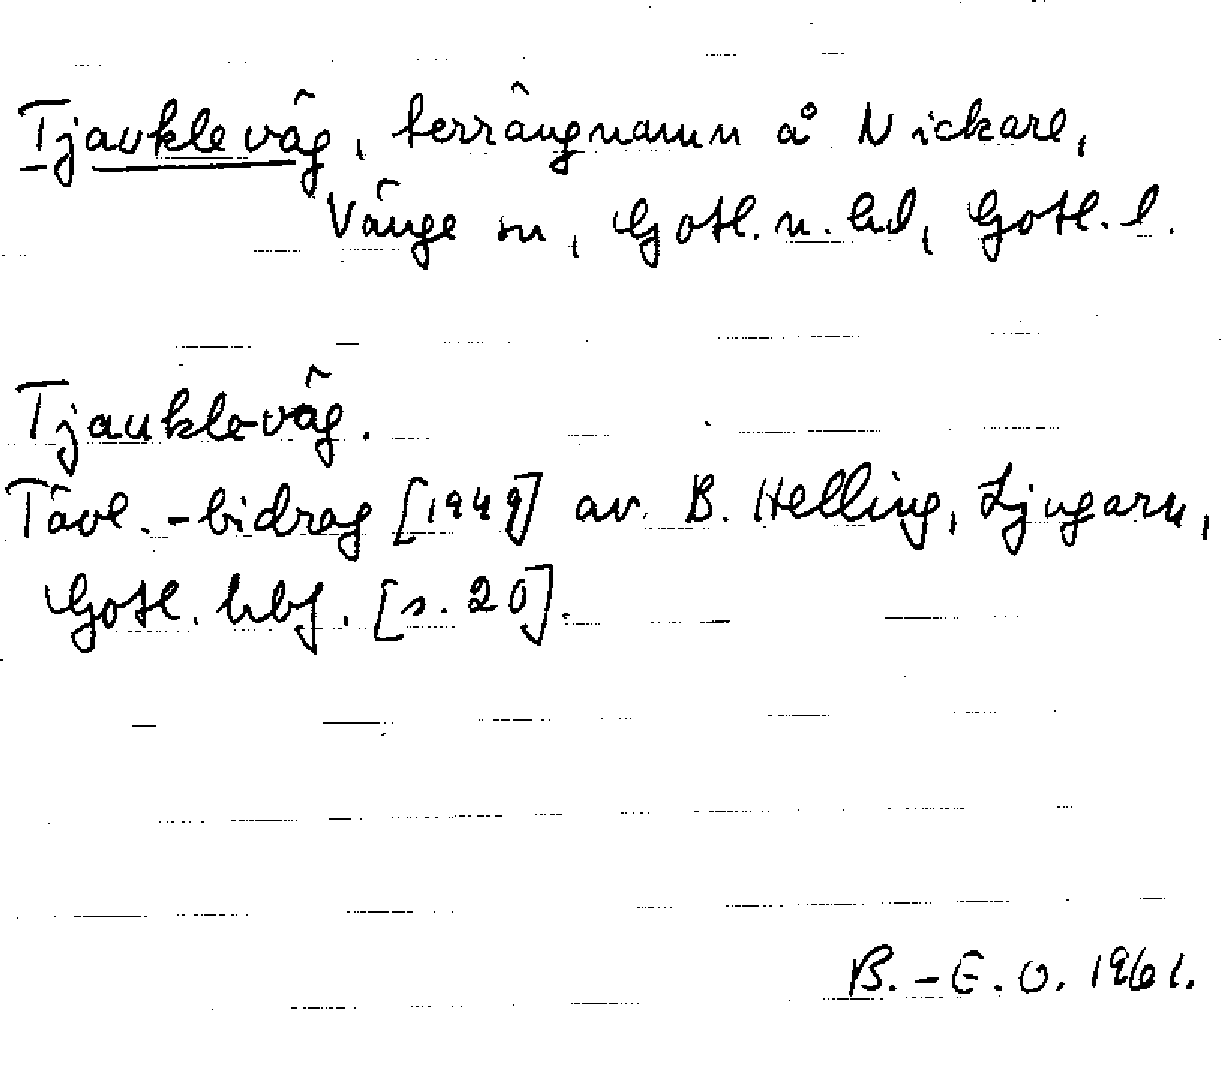 Tjaukle väg, terrängnamn å Nickarl,
Vänge sn, Gotl. n. hd, Gotl. l.
Tjaukle väg.
Tävl.-bidrag [1949] av B. Helling, Ljugarn,
Gotl. hbf. [s. 20].
B.-E. O. 1961.